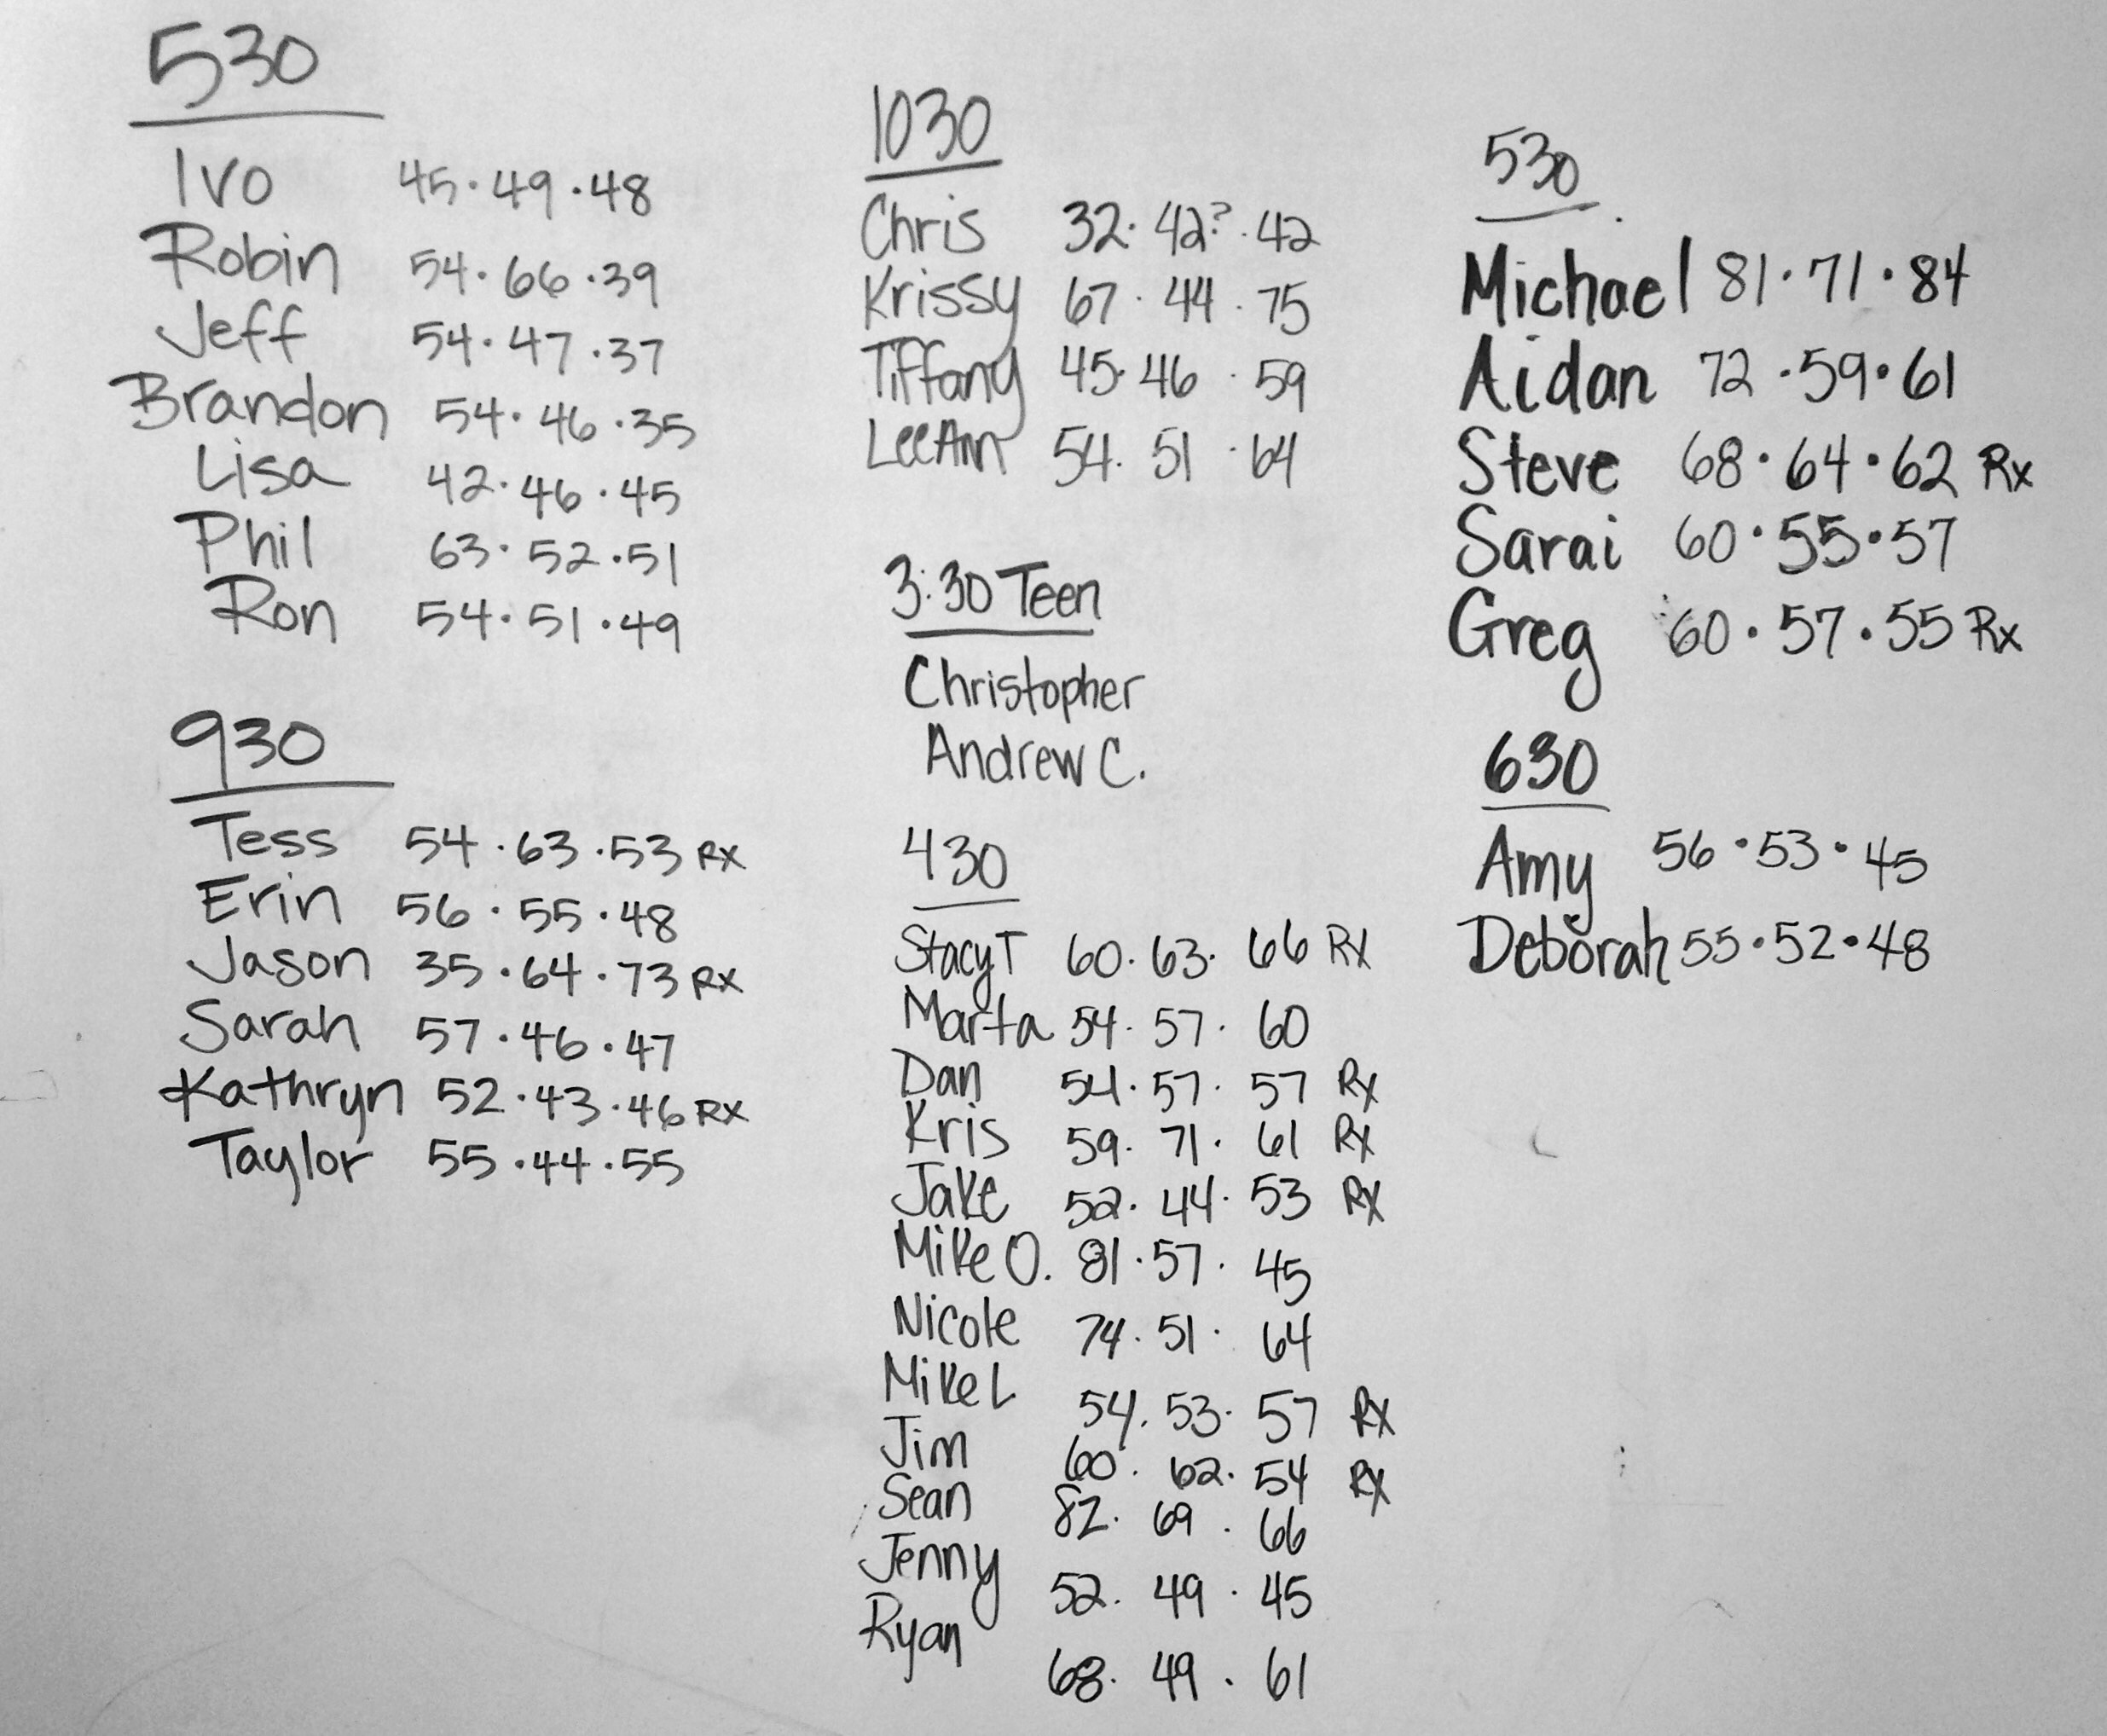 530
Ivo 45·49·48
Robin 54·66·39
Jeff 54·47·37
Brandon 54·46·35
Lisa 42·46·45
Phil 63·52·51
Ron 54·51·49
930
Tess 54·63·53 RX
Erin 56·55·48
Jason 35·64·73 RX
Sarah 57·46·47
Kathryn 52·43·46 RX
Taylor 55·44·55
1030
Chris 32·42?·42
Krissy 67·44·75
Tiffany 45·46·59
LeeAnn 54·51·64
3:30 Teen
Christopher
Andrew C.
430
Stacy T 60·63·66 Rx
Marta 54·57·60
Dan 54·57·57 Rx
Kris 59·71·61 Rx
Jake 52·44·53 Rx
Mike O. 81·57·45
Nicole 74·51·64
Mike L 54·53·57 Rx
Jim 60·62·54 Rx
Sean 82·69·66
Jenny 52·49·45
Ryan 68·49·61
530
Michael 81·71·84
Aidan 72·59·61
Steve 68·64·62 Rx
Sarai 60·55·57
Greg 60·57·55 Rx
630
Amy 56·53·45
Deborah 55·52·48